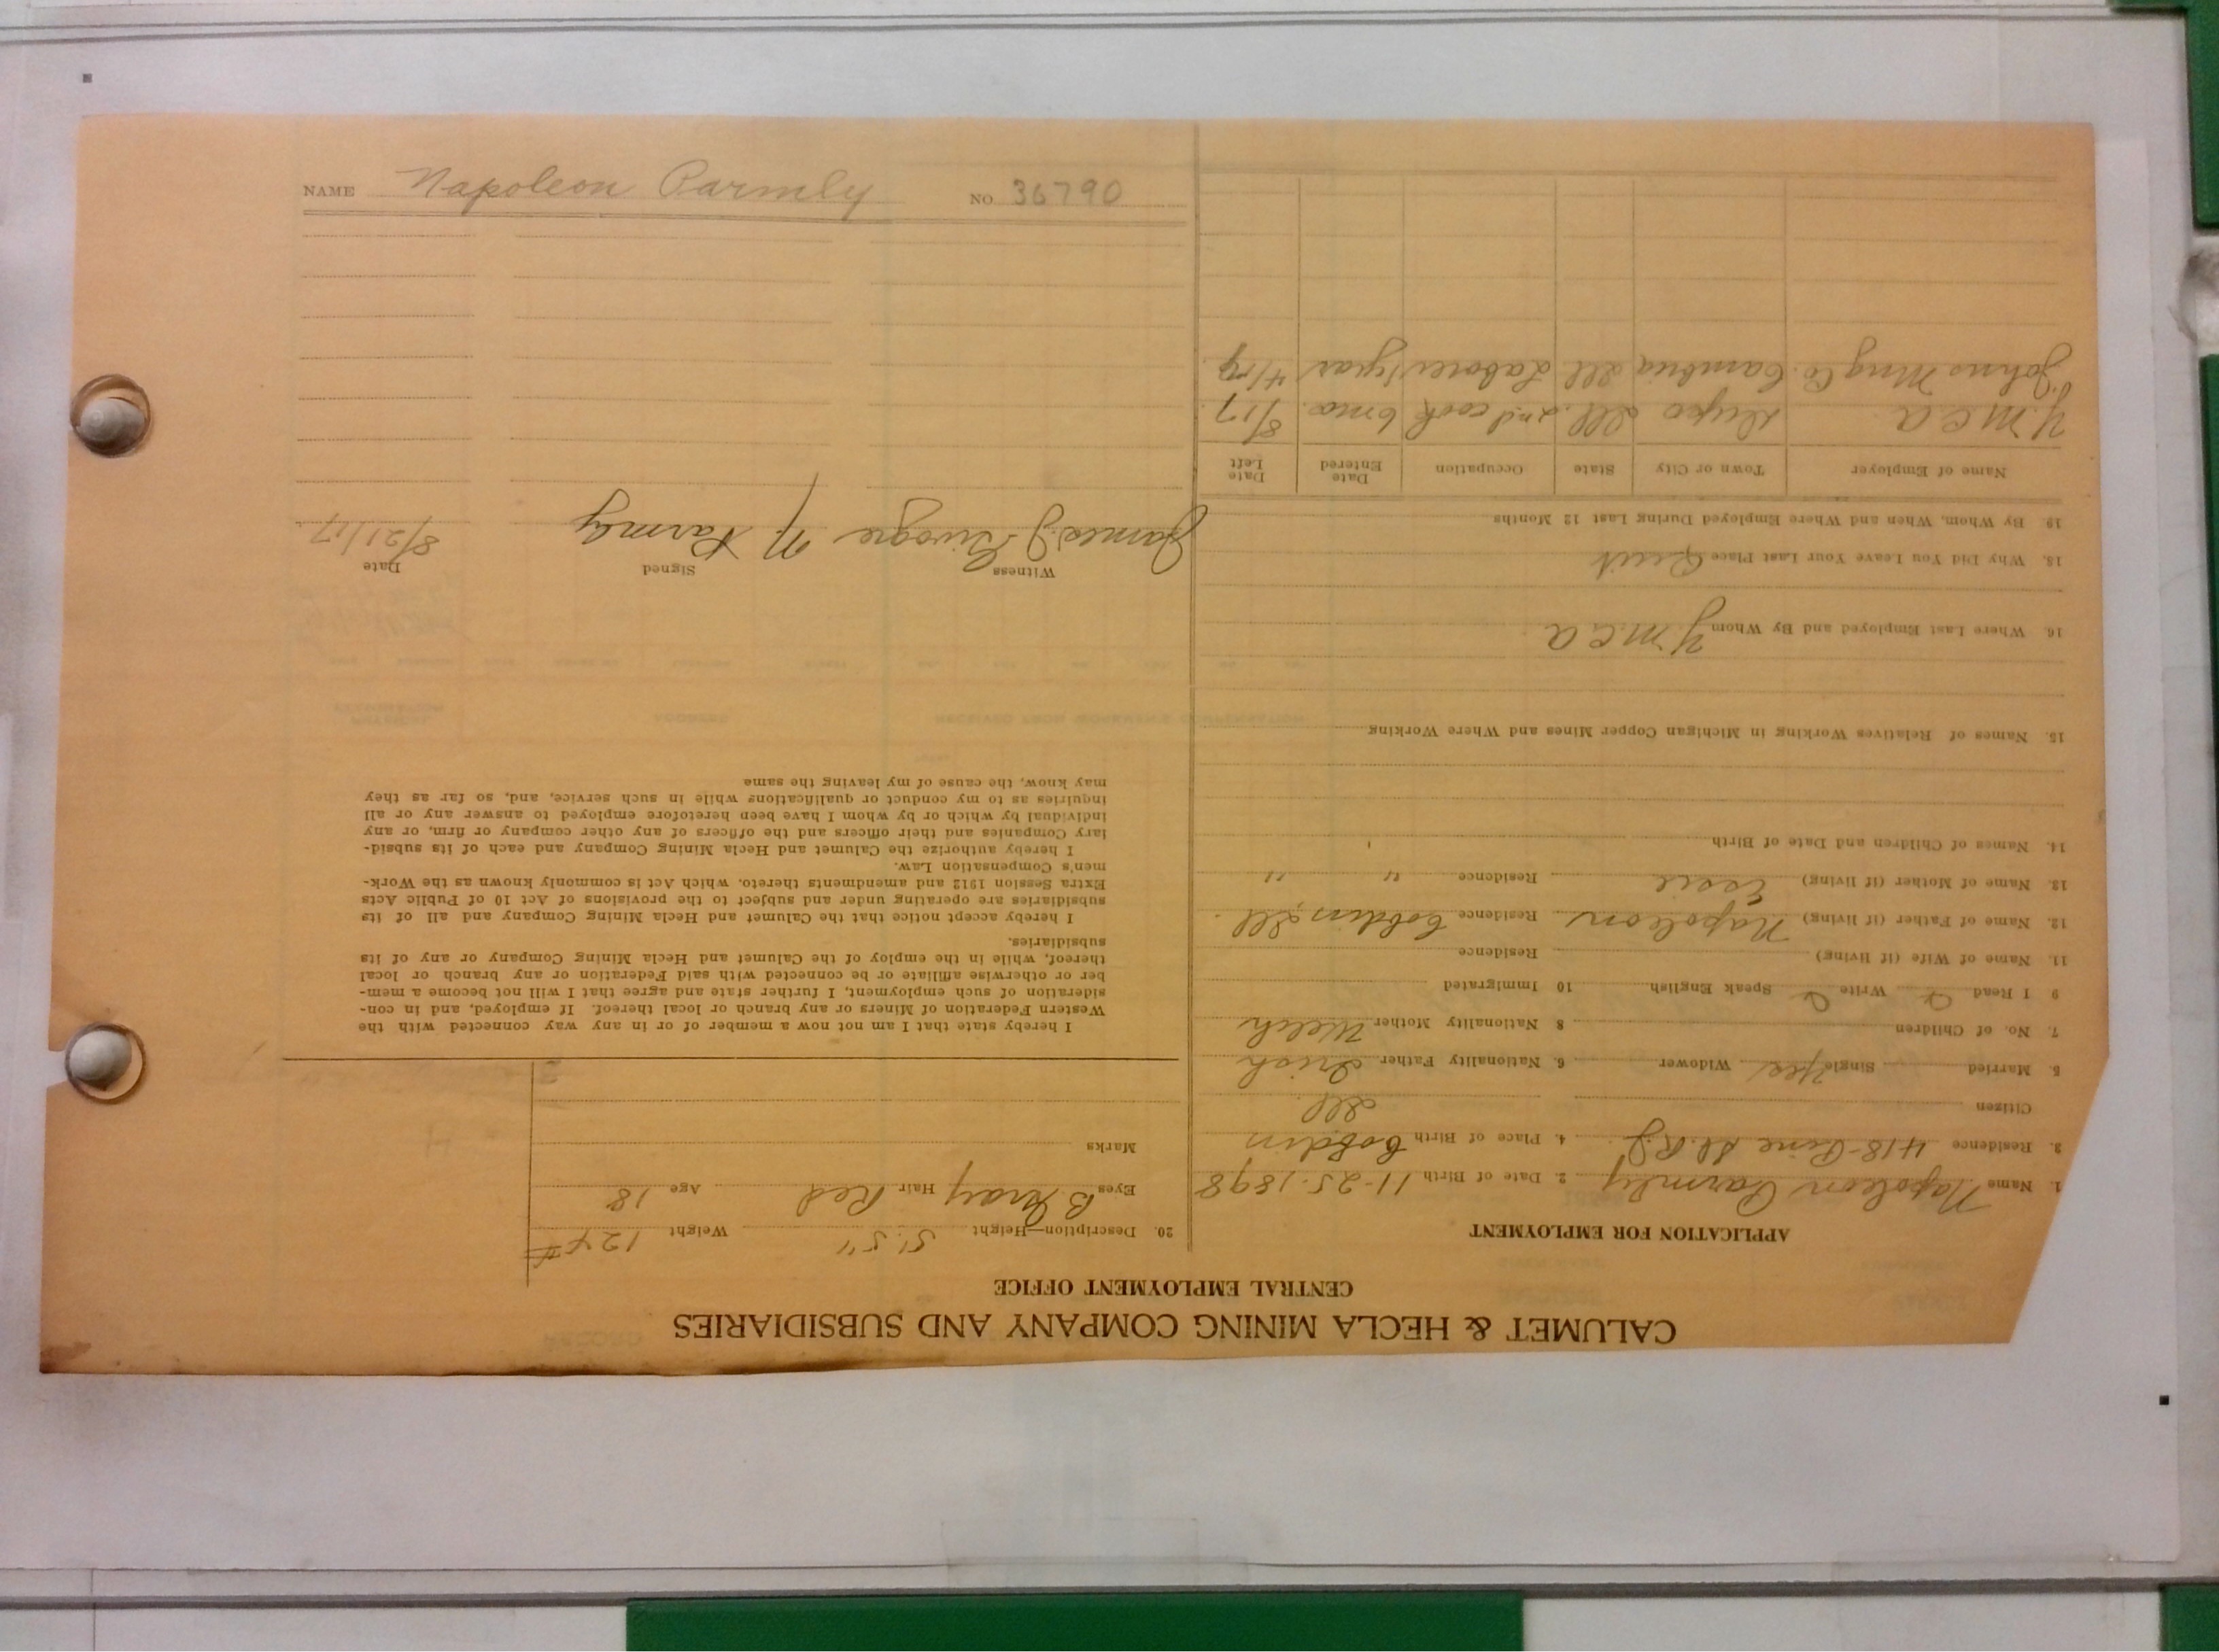 CALUMET & HECLA MINING COMPANY AND SUBSIDIARIES
CENTRAL EMPLOYMENT OFFICE
APPLICATION FOR EMPLOYMENT
1. Name Napoleon Parmly 2. Date of Birth 11-25-1898
3. Residence 418-Pine St. R.J. 4. Place of Birth Cobden
Citizen Ill
5. Married Single Yes Widower 6. Nationality Father Irish
7. No. of Children 8 Nationality Mother Welch
9 I Read Write Speak English 10 Immigrated
11. Name of Wife (if living) Residence
12. Name of Father (if living) Napoleon Residence Cobden, Ill.
13. Name of Mother (if living) Essie Residence " "
14. Names of Children and Date of Birth
15. Names of Relatives Working in Michigan Copper Mines and Where Working
16. Where Last Employed and By Whom Y.M.C.A
18. Why Did You Leave Your Last Place Quit
19. By Whom, When and Where Employed During Last 12 Months
Name of Employer Town or City State Occupation Date Entered Date Left
Y.M.C.A Dupo Ill. 2nd cook 6 mo. 8/17
Johns Mng Co. Cambria Ill Laborer 1 year 4/17
20. Description—Height 5'.5" Weight 124#
Eyes B. Gray Hair Red Age 18
Marks
I hereby state that I am not now a member of or in any way connected with the
Western Federation of Miners or any branch or local thereof. If employed, and in con-
sideration of such employment, I further state and agree that I will not become a mem-
ber or otherwise affiliate or be connected with said Federation or any branch or local
thereof, while in the employ of the Calumet and Hecla Mining Company or any of its
subsidiaries.
I hereby accept notice that the Calumet and Hecla Mining Company and all of its
subsidiaries are operating under and subject to the provisions of Act 10 of Public Acts
Extra Session 1912 and amendments thereto, which Act is commonly known as the Work-
men's Compensation Law.
I hereby authorize the Calumet and Hecla Mining Company and each of its subsid-
iary Companies and their officers and the officers of any other company or firm, or any
individual by which or by whom I have been heretofore employed to answer any or all
inquiries as to my conduct or qualifications while in such service, and, so far as they
may know, the cause of my leaving the same
Witness Signed Date
James J. N. Parmly 8/21/17
NAME Napoleon Parmly NO. 36790